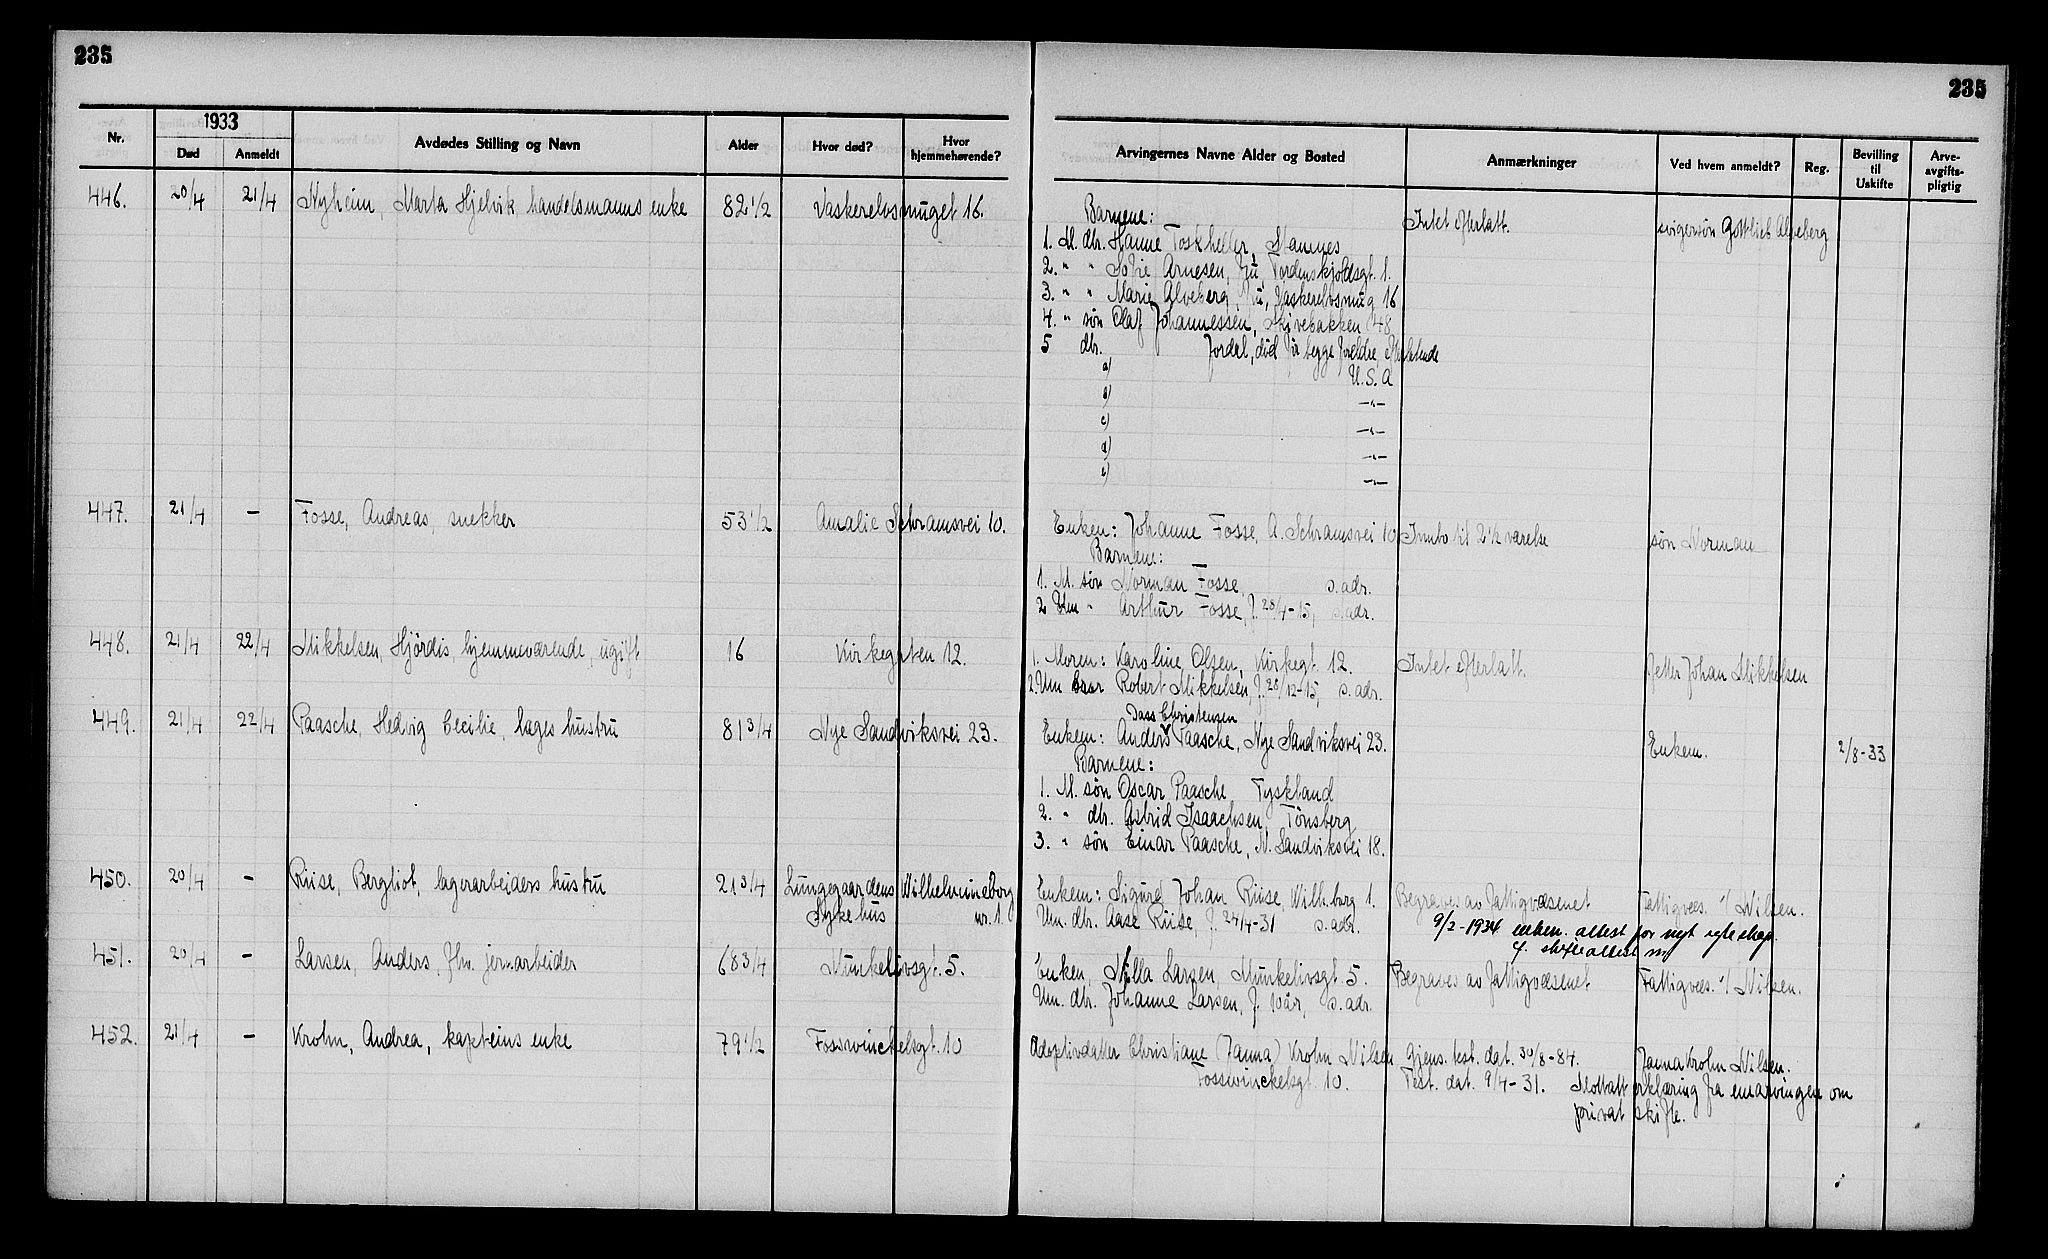 235
235
Nr.
1933
Død
Anmeldt
Avdødes Stilling og Navn
Alder
Hvor død?
Hvor hjemmehørende?
Arvingernes Navne Alder og Bosted
Anmærkninger
Ved hvem anmeldt?
Reg.
Bevilling til Uskifte
Arve-avgifts-pligtig
446. 20/4 21/4 Nyheim, Marta Hjelvik, handelsmanns enke 82 1/2 Vaskerelvsmuget 16.
Barnene: Intet efterlatt. svigersøn Gottlieb Alveberg
1. M. dtr. Hanne
2. " " Sofie Arnesen, fru, Tordenskjoldsgt. 1.
3. " " Marie Alveberg, fru, Vaskerelvsmug 16
4. " søn Olaf Johannessen, Skivebakken 48
5 dtr. Jordal, død før begge foreldre, efterlatende
a) U.S.A
b) -"-
c) -"-
d) -"-
e) -"-
447. 21/4 - Fosse, Andreas, snekker 53 1/2 Amalie Schramsvei 10.
Enken: Johanne Fosse, A. Schramsvei 10 Innbo til 2 1/2 værelse søn Norman
Barnene:
1. M. søn Norman Fosse, s. adr.
2 Um " Arthur Fosse, f. 28/4-15, s. adr.
448. 21/4 22/4 Mikkelsen, Hjørdis, hjemmeværende, ugift 16 Kirkegaten 12.
1. Moren: Karoline Olsen, Kirkegt. 12. Intet efterlatt. fetter Johan Mikkelsen
2. Um bror Robert Mikkelsen, f. 28/12-15, s. adr.
449. 21/4 22/4 Paasche, Hedvig Cecilie, lages hustru 81 3/4 Nye Sandviksvei 23.
Dass Christensen
Enkem: Anders Paasche, Nye Sandviksvei 23. Enkem. 2/8-33
Barnene:
1. M. søn Oscar Paasche Tyskland
2. " dtr. Astrid Isaachsen, Tønsberg
3. " søn Einar Paasche, N. Sandviksvei 18.
450. 20/4 - Riise, Bergliot, lagerarbeiders hustru 21 3/4 Lungegaardens Wilhelmineborg
Sykehus nr. 1.
Enkem: Sigurd Johan Riise, Wilh.borg 1. Begraves av Fattigvæsenet Fattigvæs. v/ Nilsen.
Um. dtr. Aase Riise, f. 24/4-31 s. adr. 9/2-1934 enkem. attest for nyt egteskap.
f. skifteattest
451. 20/4 - Larsen, Anders, fhv. jernarbeider 68 3/4 Munkelivsgt. 5.
Enken, Milla Larsen, Munkelivsgt. 5. Begraves av Fattigvæsenet Fattigvæs. v/ Nilsen.
Um. dtr. Johanne Larsen, f. 10 år, s. adr.
452. 21/4 - Krohn, Andrea, kapteins enke 79 1/2 Fosswinckelsgt. 10
Adoptivdatter Christiane (Janna) Krohn Nilsen Gjens. test. dat. 30/8-84. Janna Krohn Nilsen.
Fosswinckelsgt. 10. Test. dat. 9/4-31. Mottatt erklæring fra enearvingen om
privat skifte.